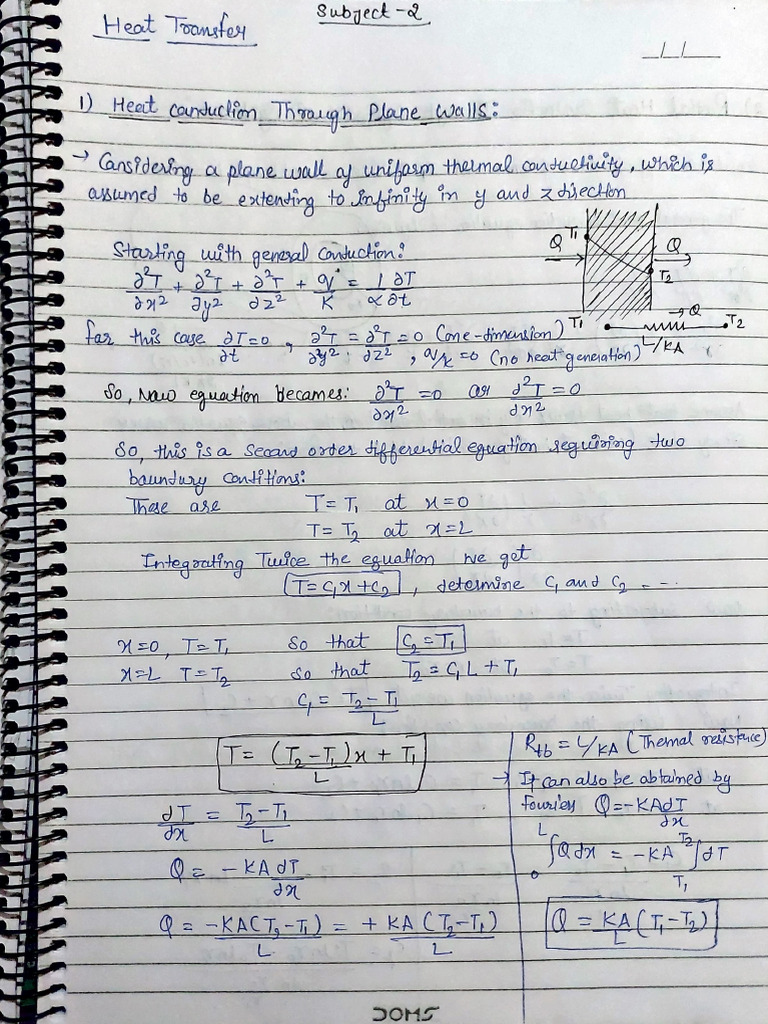 Subject-2
Heat Transfer
__/__/____
1) Heat conduction Through Plane Walls:
→ Considering a plane wall of uniform thermal conductivity, which is
assumed to be extending to infinity in y and z direction
Starting with general conduction:
∂²T/∂x² + ∂²T/∂y² + ∂²T/∂z² + q°/K = 1/α ∂T/∂t
Q T₁ Q
T₂
T₁ →Q T₂
L/KA
for this case ∂T/∂t = 0, ∂²T/∂y² = ∂²T/∂z² = 0 (one-dimension)
, q/k = 0 (no heat generation)
So, Now equation becomes: ∂²T/∂x² = 0 or ∂²T/∂x² = 0
So, this is a second order differential equation requiring two
boundury conditions:
These are T = T₁ at x=0
T = T₂ at x=L
Integrating Twice the equation we get
T = C₁x + C₂ , determine C₁ and C₂ - - -
x=0, T=T₁ so that C₂ = T₁
x=L T=T₂ so that T₂ = C₁L + T₁
C₁ = T₂-T₁/L
T = (T₂-T₁)x/L + T₁
dT/dx = T₂-T₁/L
Q = -KA dT/dx
Q = -KA(T₂-T₁)/L = + KA (T₂-T₁)/L
Rtb = L/KA (Themal resistence)
→ It can also be obtained by
fouries Q = -KA dT/dx
∫₀ᴸ Q dx = -KA ∫ dT T₂ T₁
Q = KA/L (T₁-T₂)
DOMS